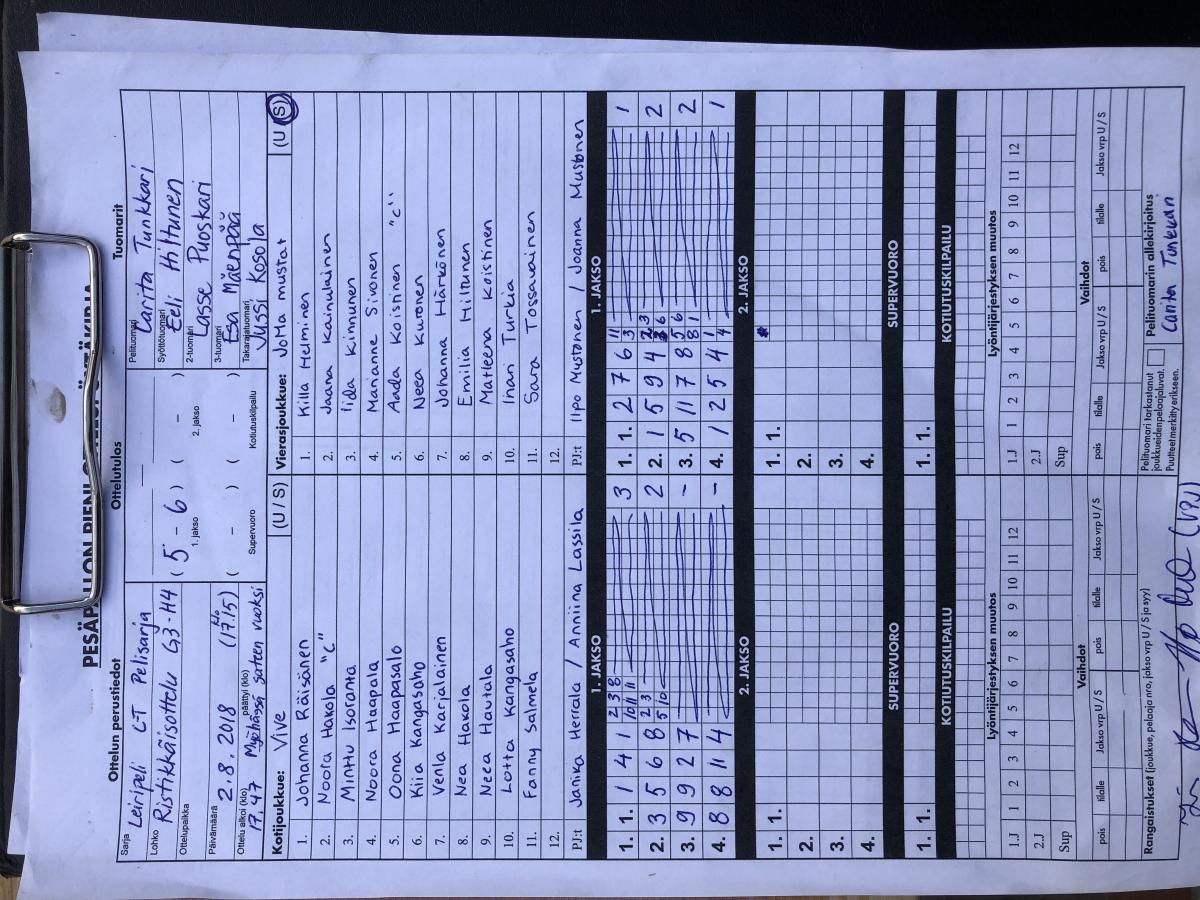 PESÄPALLON PIENI
Ottelun perustiedot
Ottelutulos
Tuomarit
Sarja Leiripeli C-T Pelisarja
Lohko Ristikkäisottelu G3-H4
Ottelupaikka
Päivämäärä 2.8.2018 (17.15)
Ottelu alkoi (klo) 17.47 päättyi (klo)
Myöhässä sateen vuoksi
( 5 - 6 ) ( - )
1. jakso 2. jakso
( - ) ( - )
Supervuoro Kotiutuskilpailu
Pelituomari Carita Tunkkari
Syöttötuomari Eeli Hiltunen
2-tuomari Lasse Puoskari
3-tuomari Esa Mäenpää
Takarajatuomari Jussi Kosola
Kotijoukkue: Vive (U / S)
1. Johanna Räisänen
2. Noora Hakola "C"
3. Minttu Isoranta
4. Noora Haapala
5. Oona Haapasalo
6. Kiia Kangasaho
7. Venla Karjalainen
8. Nea Hakola
9. Neea Hautala
10. Lotta Kangasaho
11. Fanny Salmela
12.
PJ:t Janika Herrala / Anniina Lassila
Vierasjoukkue: JoMa mustat (U / S)
1. Killa Helminen
2. Jaana Kainulainen
3. Iida Kinnunen
4. Marianne Sivonen
5. Aada Koistinen "C"
6. Neea Kuronen
7. Johanna Härkönen
8. Emilia Hiltunen
9. Matleena Koistinen
10. Inari Turkia
11. Sara Tossavainen
12.
PJ:t Ilpo Mustonen / Joanna Mustonen
1. JAKSO
1. 1. 1 4 1 2 3 8 10 11 11 3
2. 3 5 6 8 2 3 5 10 2
3. 9 9 2 7 -
4. 8 8 11 4 -
2. JAKSO
1. 1.
2.
3.
4.
SUPERVUORO
1. 1.
KOTIUTUSKILPAILU
1. JAKSO
1. 1. 2 7 6 11 3 1
2. 1 5 9 4 2 3 6 2
3. 5 11 7 8 5 6 8 1 2
4. 1 2 5 4 1 4 1
2. JAKSO
1. 1.
2.
3.
4.
SUPERVUORO
1. 1.
KOTIUTUSKILPAILU
Lyöntijärjestyksen muutos
1.J 1 2 3 4 5 6 7 8 9 10 11 12
2.J
Sup
Vaihdot
pois tilalle Jakso vrp U / S pois tilalle Jakso vrp U / S
Lyöntijärjestyksen muutos
1.J 1 2 3 4 5 6 7 8 9 10 11 12
2.J
Sup
Vaihdot
pois tilalle Jakso vrp U / S pois tilalle Jakso vrp U / S
Rangaistukset (joukkue, pelaaja nro, jakso vrp U / S ja syy)
Pelituomari tarkastanut
joukkueiden pelaajaluvat.
Puutteet merkitty erikseen.
Pelituomarin allekirjoitus
Carita Tunkkari